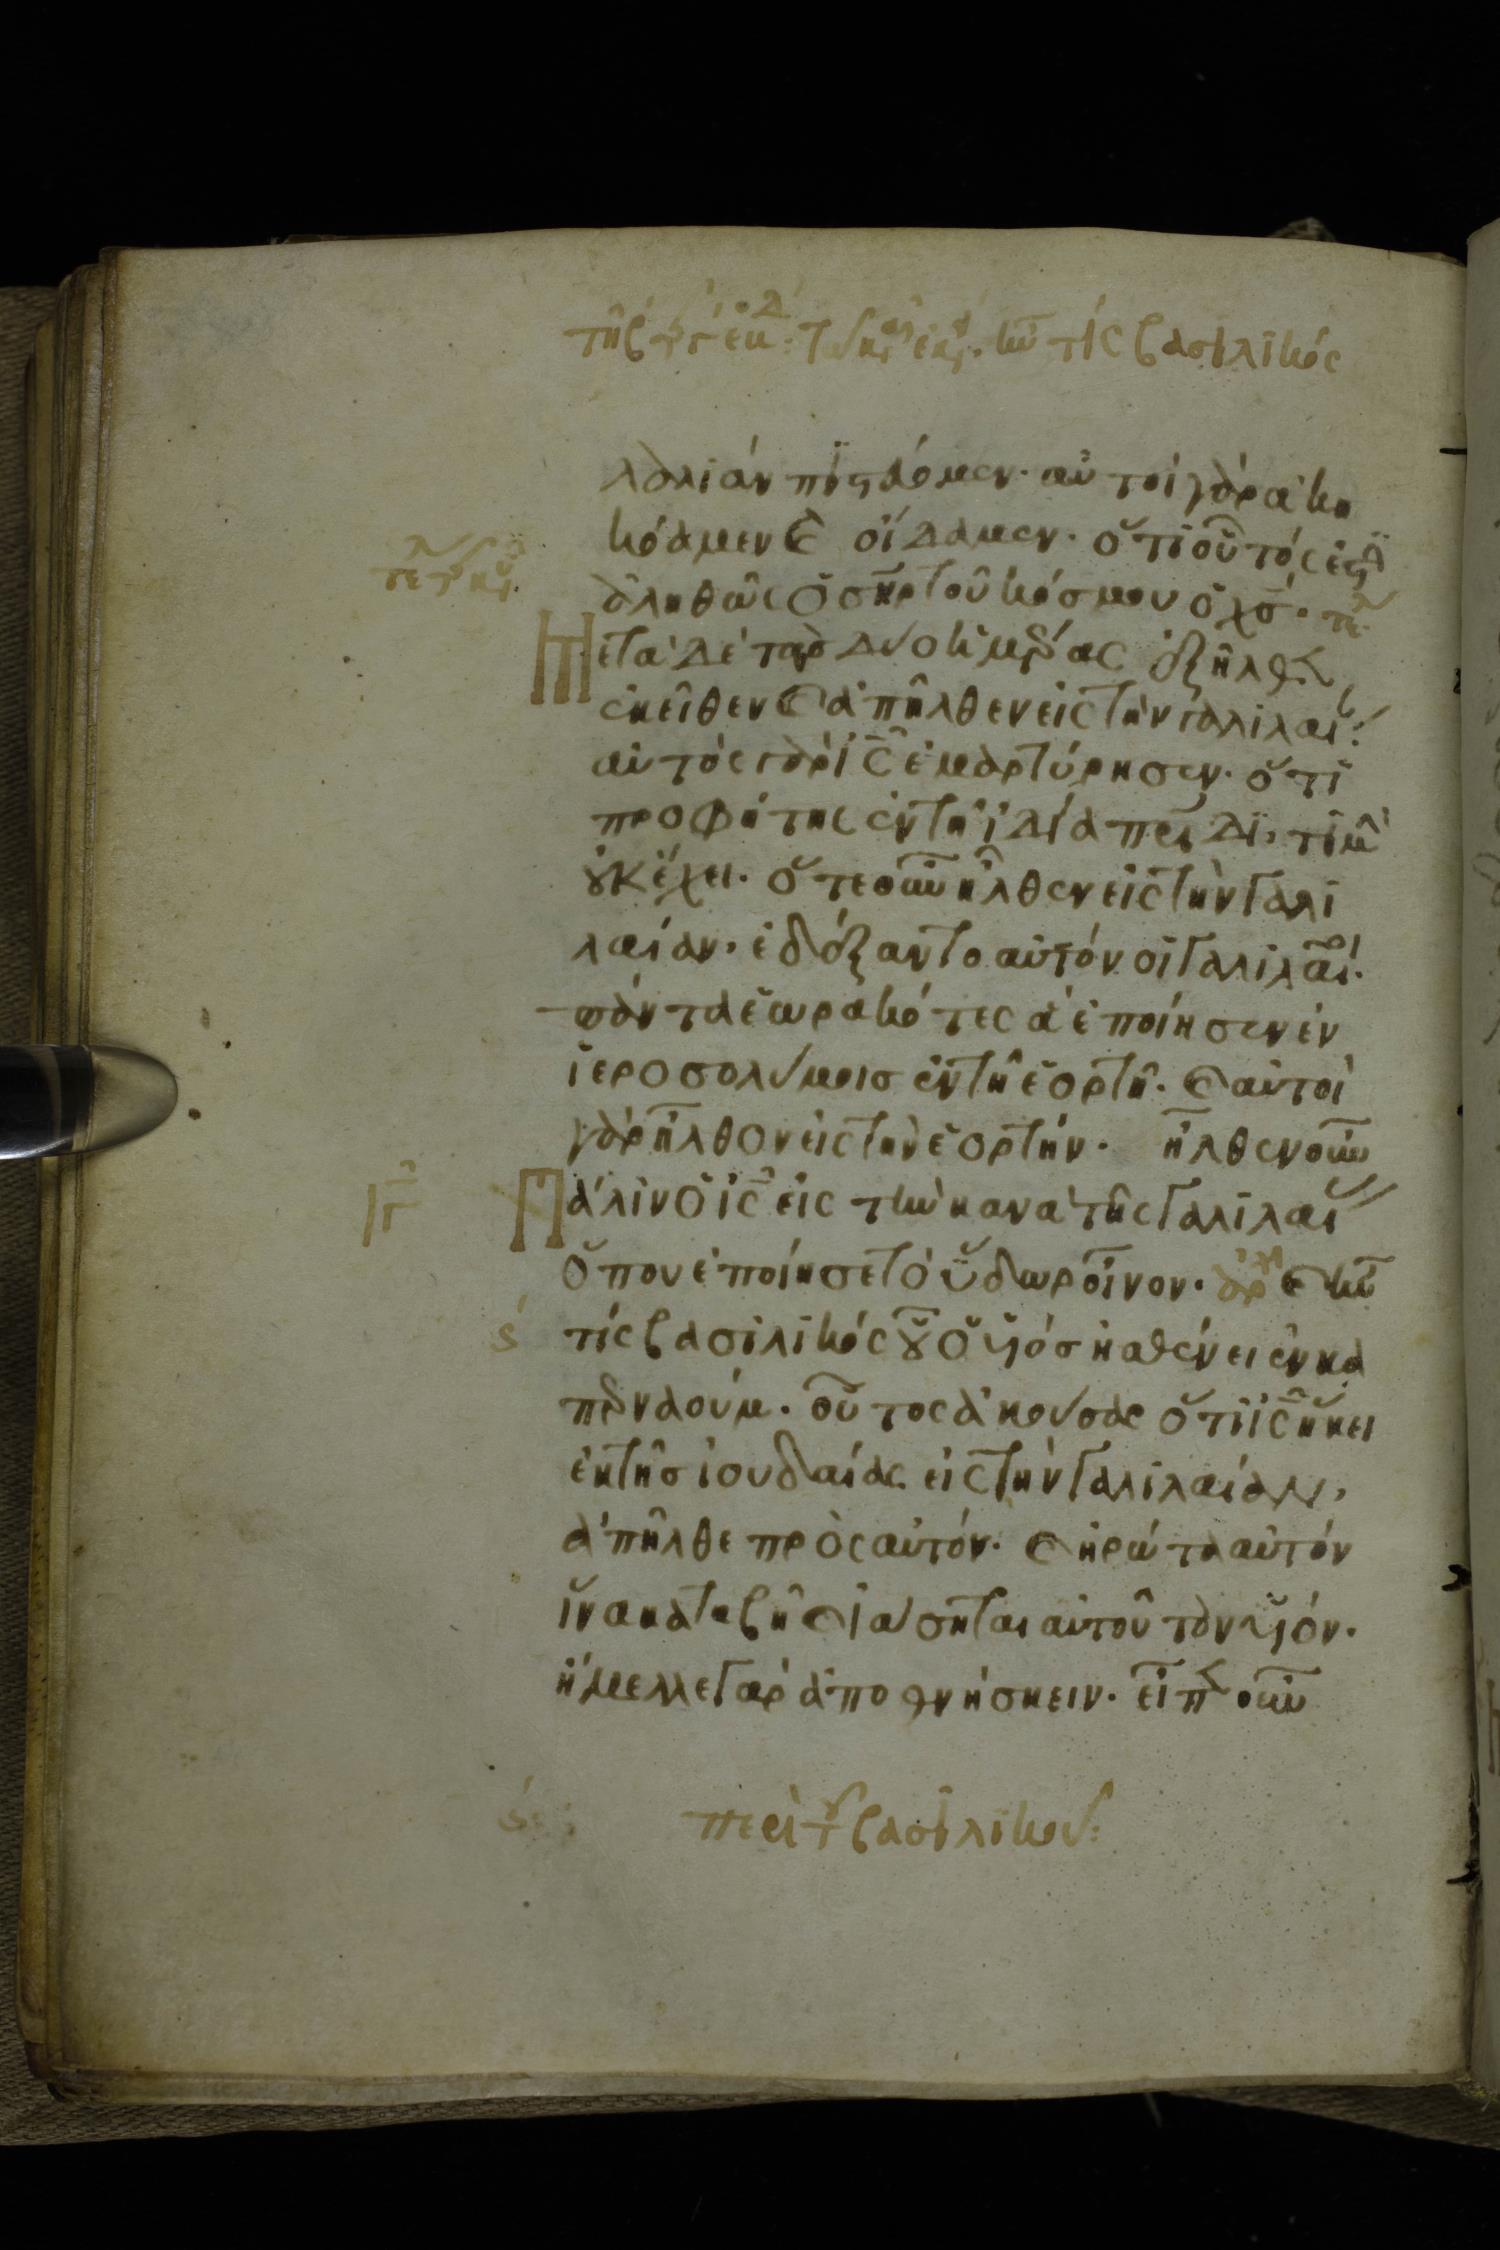 ἦν τίς βασιλικός
λαλιὰν πιστεύομεν· αὐτοὶ γὰρ ἀκη
κόαμεν κ οἴδαμεν· ὅτι οὗτός ἐστ
ἀληθῶς ὁ σηρ τοῦ κόσμου ὁ χσ·
Μετὰ δὲ τὰς δύο ἡμέρας ἐξῆλθεν
ἐκεῖθεν κ ἀπῆλθεν εἰς τὴν γαλιλαί
αὐτὸς γὰρ ἰς ἐμαρτύρησεν· ὅτι
προφήτης ἐν τῆ ἰδία πρίδι, τιμ
οὐκ ἔχει· ὅτε οὖν ἦλθεν εἰς τὴν γαλι
λαίαν, ἐδέξαντο αὐτόν οἱ γαλιλαῖοι·
πάντα ἑωρακότες ἃ ἐποίησεν ἐν
ἱεροσολύμοισ ἐν τῆ ἑορτῆ· κ αὐτοὶ
γὰρ ἦλθον εἰς τὴν ἑορτήν· ἦλθεν οὖν
Πάλιν ὁ ἰς εἰς τὴν κανὰ τῆς γαλιλαί
ὅπου ἐποίησε τὸ ὕδωρ οἶνον· κ ἦν
τίς βασιλικός οὗ ὁ υἱόσ ἠσθένει ἐν κα
περναούμ· οὗτος ἀκούσας ὅτι ἰς ἥκει
ἐκ τῆσ ἰουδαίας εἰς τὴν γαλιλαίαν,
ἀπῆλθε πρὸς αὐτόν· κ ἠρώτα αὐτόν
ἵνα καταβῆ κ ἰάσηται αὐτοῦ τὸν υἱόν·
ἤμελλε γὰρ ἀποθνήσκειν· εἶπεν οὖν
ς περὶ τοῦ βασιλικοῦ: